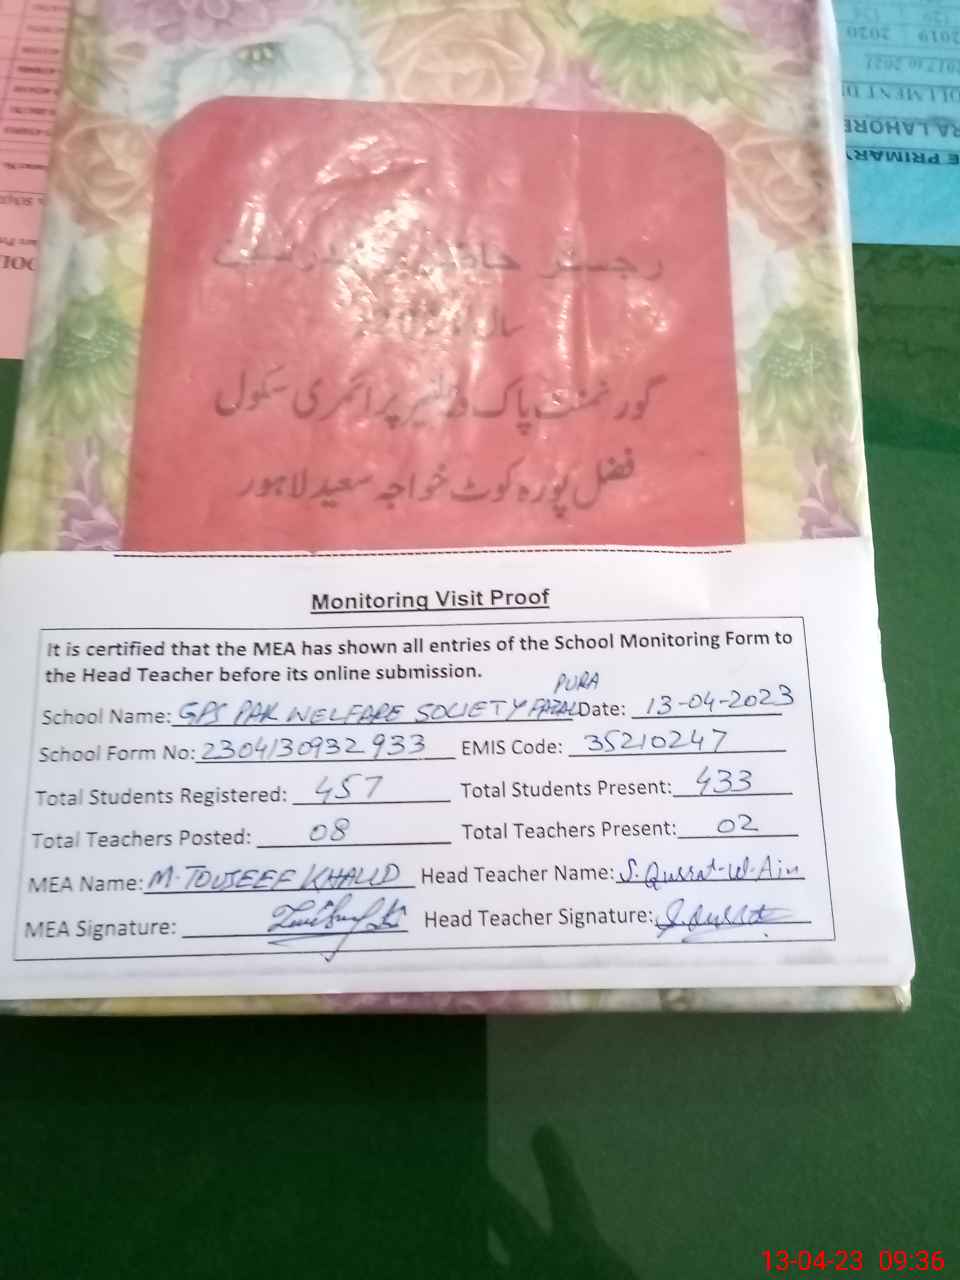 2019 2020
2017 to 2021
RA LAHORE
E PRIMARY
رجسٹر
سال
گورنمنٹ پاک ویلفیئر پرائمری سکول
فضل پورہ کوٹ خواجہ سعید لاہور
Monitoring Visit Proof
It is certified that the MEA has shown all entries of the School Monitoring Form to
the Head Teacher before its online submission.
PURA
School Name: GPS PAK WELFARE SOCIETY FAZAL Date: 13-04-2023
School Form No: 2304130932933 EMIS Code: 35210247
Total Students Registered: 457 Total Students Present: 433
Total Teachers Posted: 08 Total Teachers Present: 02
MEA Name: M. TOUSEEF KHALID Head Teacher Name: S. Qurrat-ul-Ain
MEA Signature: Head Teacher Signature: S. Qurrat
13-04-23 09:36